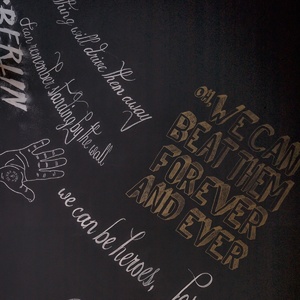 BERLIN
thing will drive them away
I can remember standing by the wall
we can be heroes,
oh, WE CAN
BEAT THEM
FOREVER
AND EVER